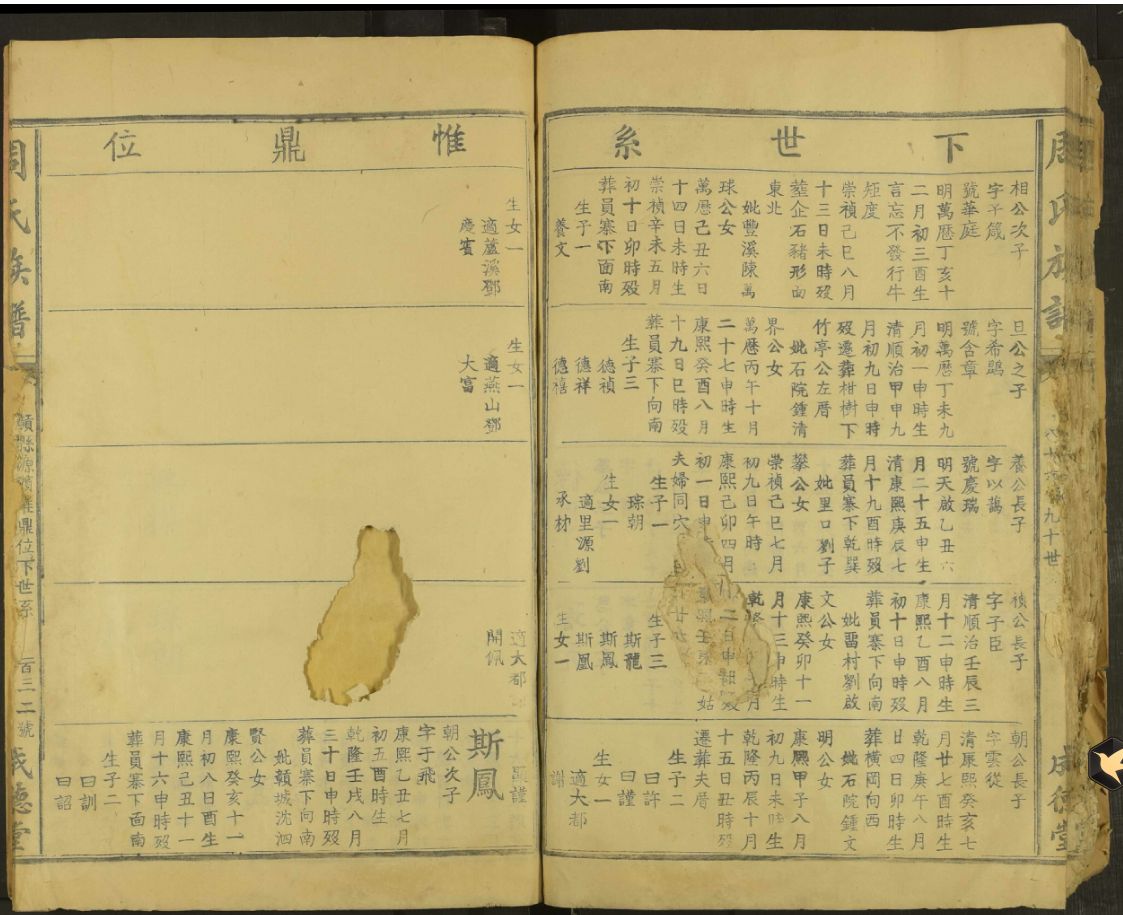 下世系
相公次子
字千箴
號華庭
明萬曆丁亥十
二月初三酉生
言忘不發行牛
矩度
崇禎己巳八月
十三日未時歿
塟企石豬形向
東北
妣豐溪陳萬
球公女
萬曆己丑六日
十四日未時生
崇禎辛未五月
初十日卯時歿
葬員寨下面南
生子一
養文
旦公之子
字希鵾
號含章
明萬曆丁未九
月初一申時生
清順治甲申九
月初九日申時
歿遷葬柑樹下
竹亭公左厝
妣石院鍾清
界公女
萬曆丙午十月
二十七申時生
康熙癸酉八月
十九日巳時歿
葬員寨下向南
生子三
德禎
德祥
德禧
養公長子
字以藹
號慶瑞
明天啟乙丑六
月二十五申生
清康熙庚辰七
月十九酉時歿
葬員寨下乾巽
妣里口劉子
攀公女
崇禎己巳七月
初九日午時
康熙己卯四月
初一日申
夫婦同穴
生子一
琮朝
生女一
適里源劉
承材
禎公長子
字子臣
清順治壬辰三
月十二申時生
康熙乙酉八月
初十日申時歿
葬員寨下向南
妣畱村劉啟
文公女
康熙癸卯十一
月十三申時生
乾隆
二日申時歿
姑
生子三
斯龍
斯鳳
斯凰
生女一
朝公長子
字雲從
清康熙癸亥七
月廿七酉時生
乾隆庚午八月
廿四日卯時生
葬橫岡向西
妣石院鍾文
明公女
康熙甲子八月
初九日未時生
乾隆丙辰十月
十五日丑時歿
遷葬夫厝
生子二
曰許
曰謹
生女一
適大都
謝
惟鼎位
生女一
適蘆溪鄧
慶賓
生女一
適燕山鄧
大富
適大都
開佩
斯鳳
朝公次子
字于飛
康熙乙丑七月
初五酉時生
乾隆壬戌八月
三十日申時歿
葬員寨下向南
妣贛城沈泗
賢公女
康熙癸亥十一
月初八日酉生
康熙己丑十一
月十六申時歿
葬員寨下面南
生子二
曰訓
曰詔
周氏族譜
贛縣源 惟鼎位下世系
百三二號
盛德堂